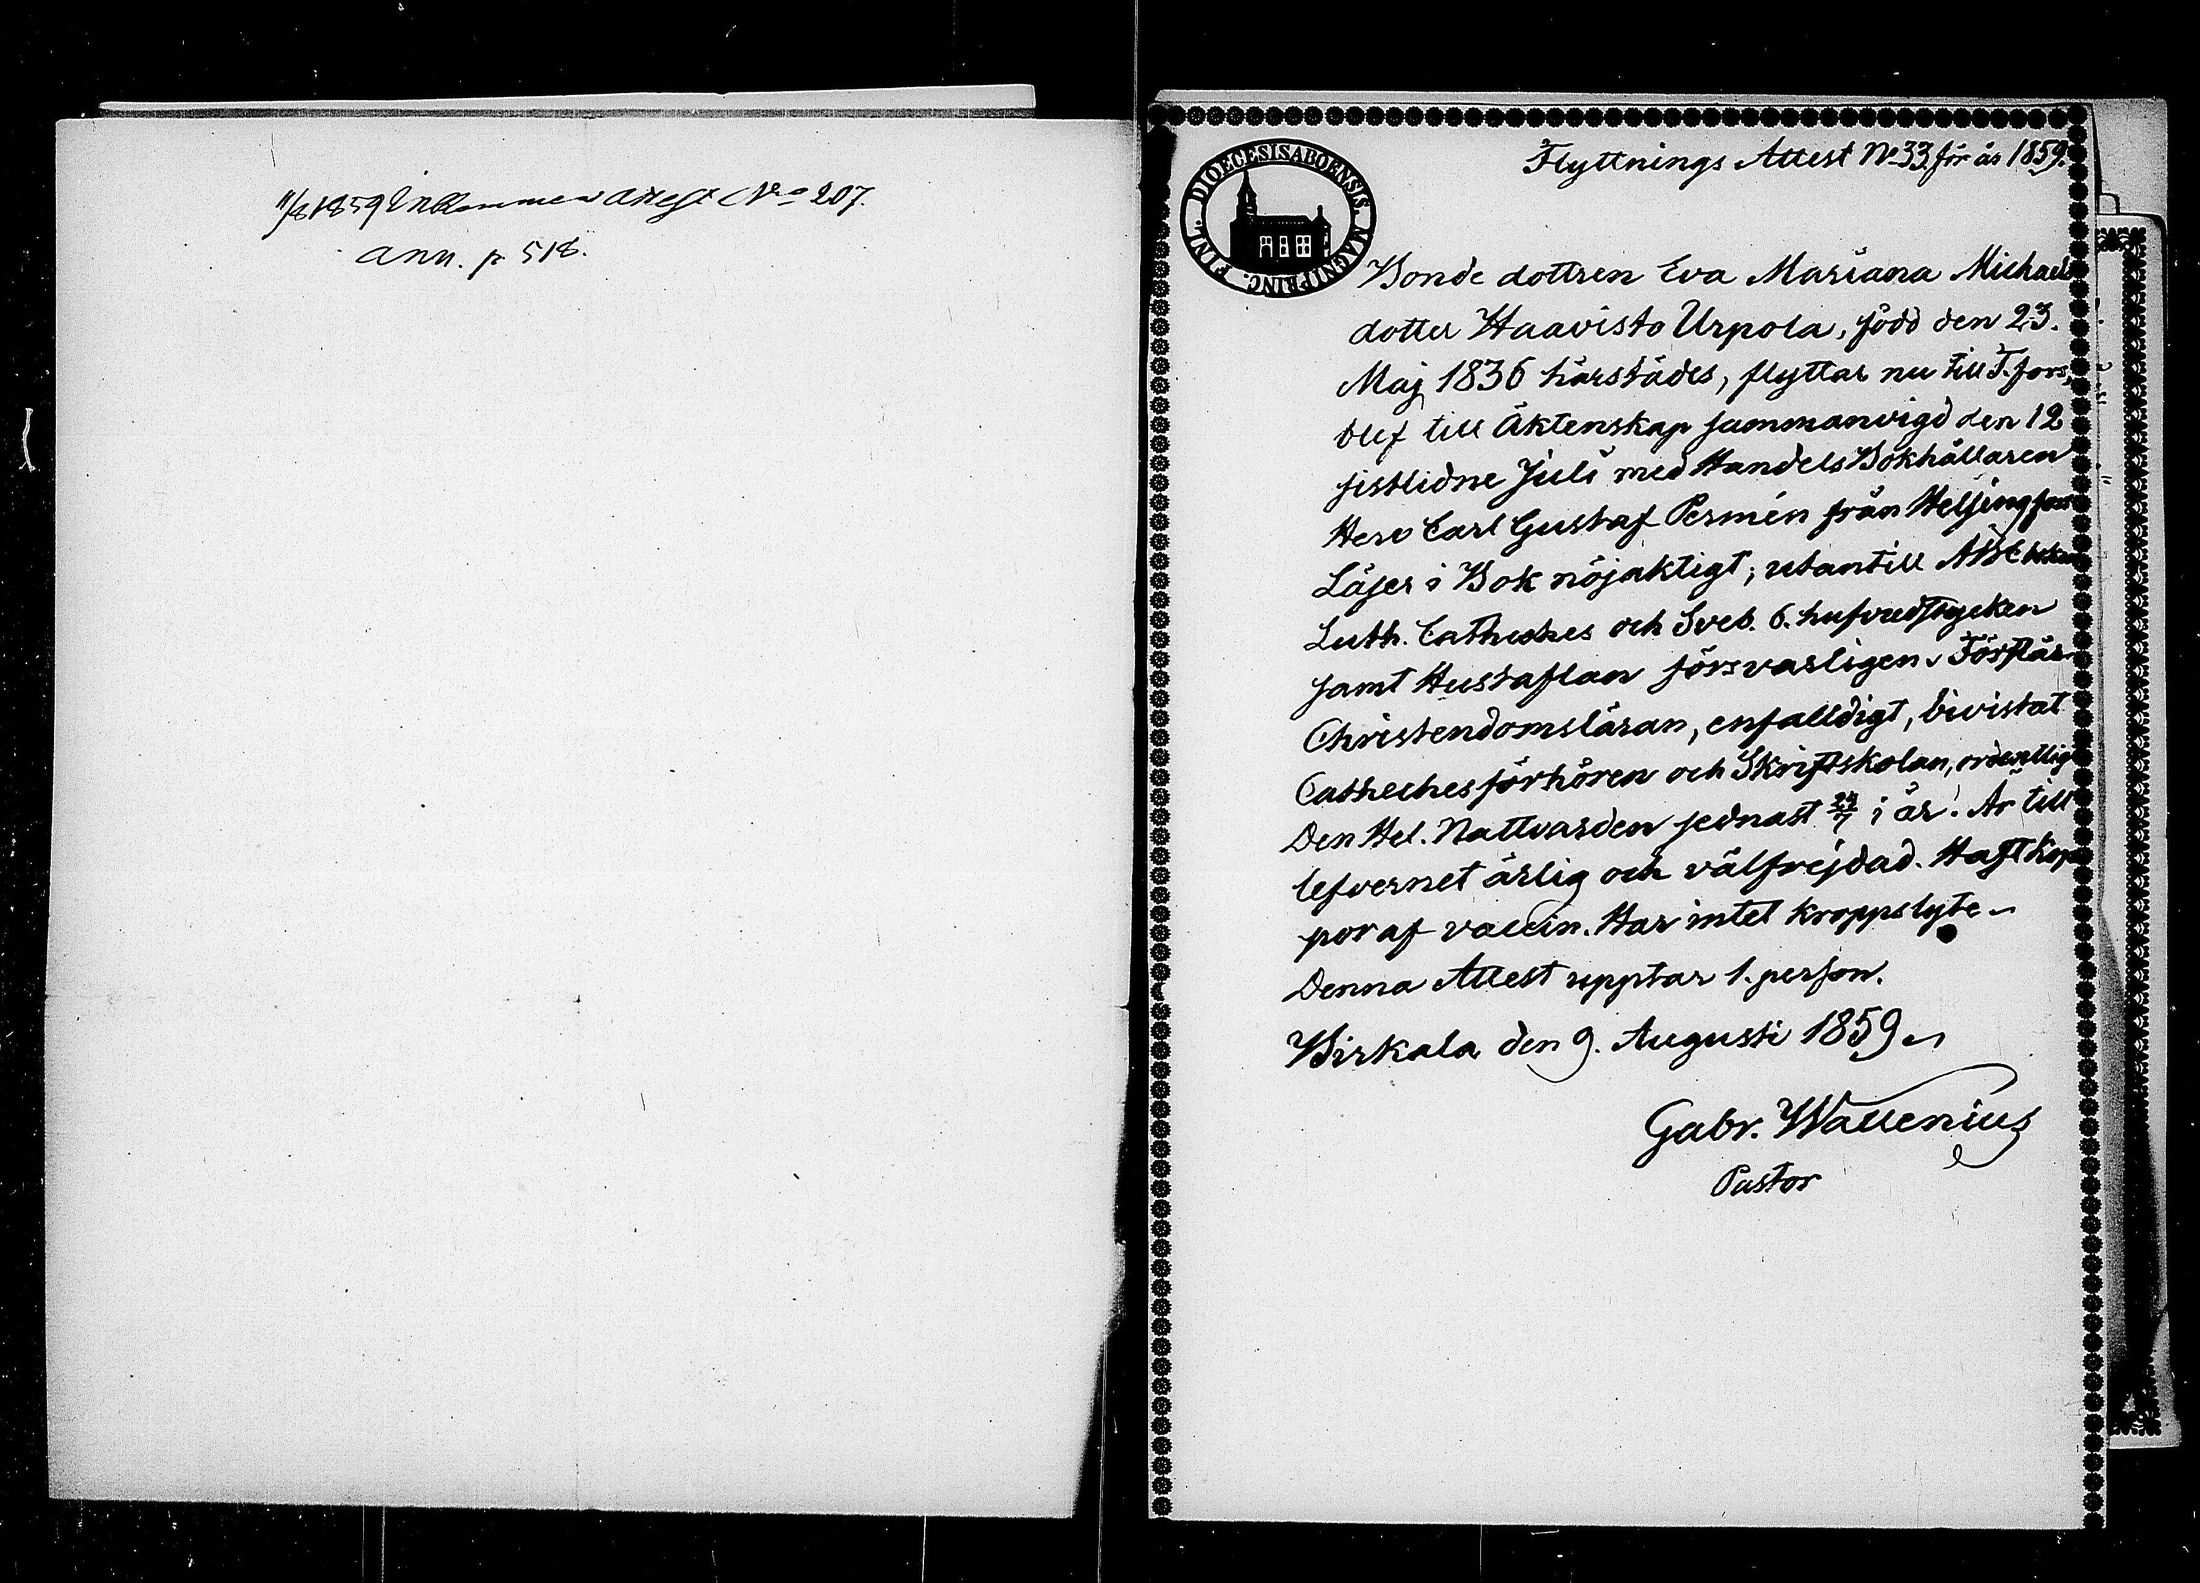 11/8 1859 Inkommen attest No 207.
ann. p 518.
DIOECESIS ABOENSIS. MAGNI PRINC. FINL.
Flyttnings Attest No 33 för år 1859.
Bonde dottren Eva Mariana Michaels
dotter Haavisto Urpola, född den 23.
Maj 1836 härstädes, flyttar nu till T.fors,
blef till Äktenskap sammanvigd den 12
sistlidne Juli med Handels Bokhållaren
Herr Carl Gustaf Permén från Helsingfors
Läser i Bok nöjaktigt; utantill ABC boken
Luth. Catheches och Sveb. 6. hufvudstycken
samt Hustaflan försvarligen. Förstår
Christendomsläran, enfalldigt, bivistat
Cathechesförhören och Skriftskolan, ordentligt
Den Hel. Nattvarden sednast 24/7 i år. Är till
lefvernet ärlig och välfrejdad. Haft kop
por af vaccin. Har intet kroppslyte.
Denna Attest upptar 1. person.
Birkala den 9. Augusti 1859.
Gabr. Wallenius
Pastor